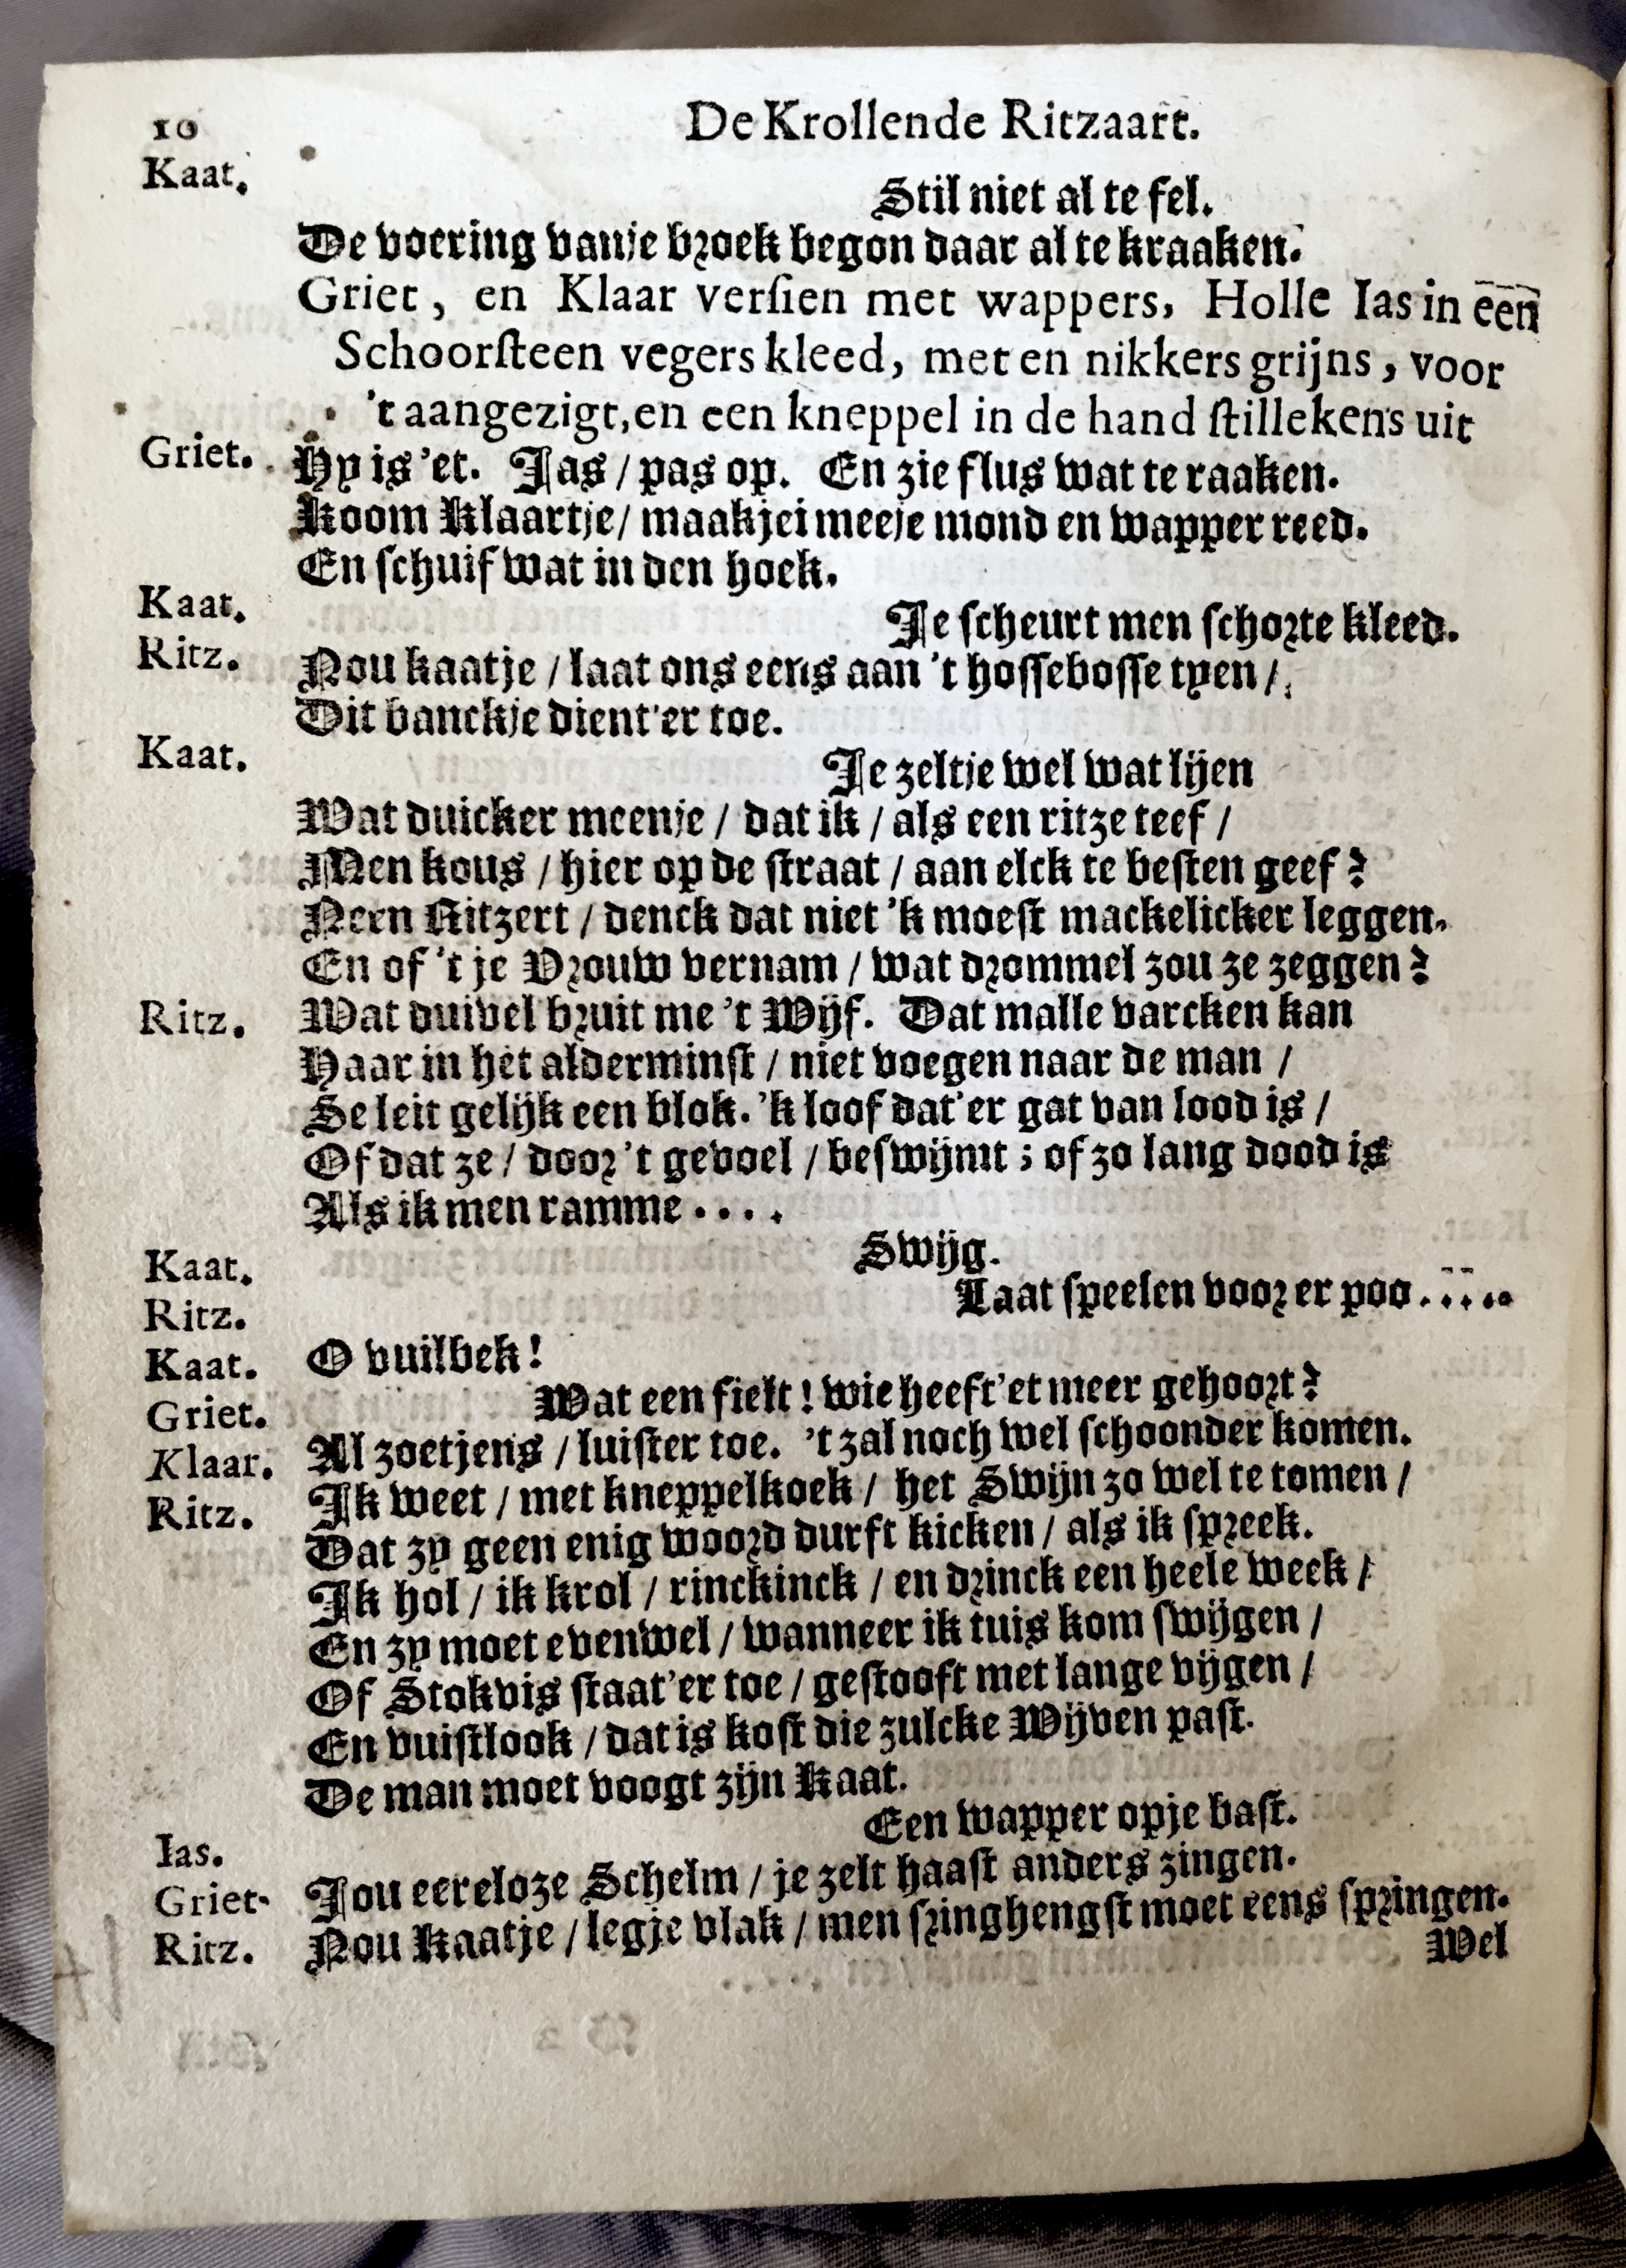 10 De Krollende Ritzaart.
Kaat. Stil niet al te fel.
De voering vanje broek begon daar al te kraaken.
Griet, en Klaar versien met wappers, Holle Ias in een
Schoorsteen vegers kleed, met en nikkers grijns, voor
't aangezigt, en een kneppel in de hand stillekens uit
Griet. Hy is 'et. Jas / pas op. En zie flus wat te raaken.
Koom Klaartje / maakjei meeje mond en wapper reed.
En schuif wat in den hoek.
Kaat. Je scheurt men schorte kleed.
Ritz. Nou kaatje / laat ons eens aan 't hossebosse tyen /
Dit banckje dient'er toe.
Kaat. Je zeltje wel wat lijen
Wat duicker meenje / dat ik / als een ritze teef /
Men kous / hier op de straat / aan elck te besten geef?
Neen Ritzert / denck dat niet 'k moest mackelicker leggen.
En of 't je Vrouw vernam / wat drommel zou ze zeggen?
Ritz. Wat duivel bruit me 't Wijf. Dat malle varcken kan
Haar in het alderminst / niet voegen naar de man /
Se leit gelijk een blok. 'k loof dat'er gat van lood is /
Of dat ze / door 't gevoel / beswijmt; of zo lang dood is
Als ik men ramme ....
Kaat. Swijg.
Ritz. Laat speelen voor er poo.....
Kaat. O vuilbek!
Griet. Wat een fielt! wie heeft'et meer gehoort?
Klaar. Al zoetjens / luister toe. 't zal noch wel schoonder komen.
Ritz. Ik weet / met kneppelkoek / het Swijn zo wel te tomen /
Dat zy geen enig woord durft kicken / als ik spreek.
Ik hol / ik krol / rinckinck / en drinck een heele week /
En zy moet evenwel / wanneer ik tuis kom swijgen /
Of Stokvis staat'er toe / gestooft met lange vijgen /
En vuistlook / dat is kost die zulcke Wijven past.
De man moet voogt zijn Kaat.
Ias. Een wapper opje bast.
Griet. Jou eereloze Schelm / je zelt haast anders zingen.
Ritz. Nou Kaatje / legje vlak / men springhengst moet eens springen.
Wel